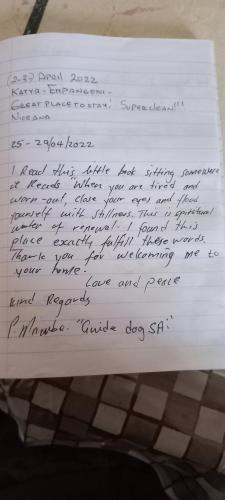 (2-3) April 2022
Katya - Empangeni -
Great place to stay! Superclean!!!
25 - 29/04/2022
I Read this little book sitting somewhere
it Reads When you are tired and
worn-out, close your eyes and flood
yourself with stillness. This is spiritual
water of renewal. I found this
place exactly fulfill these words.
Thank you for welcoming me to
your home.
Love and peace
Kind Regards
"Guide dog SA."